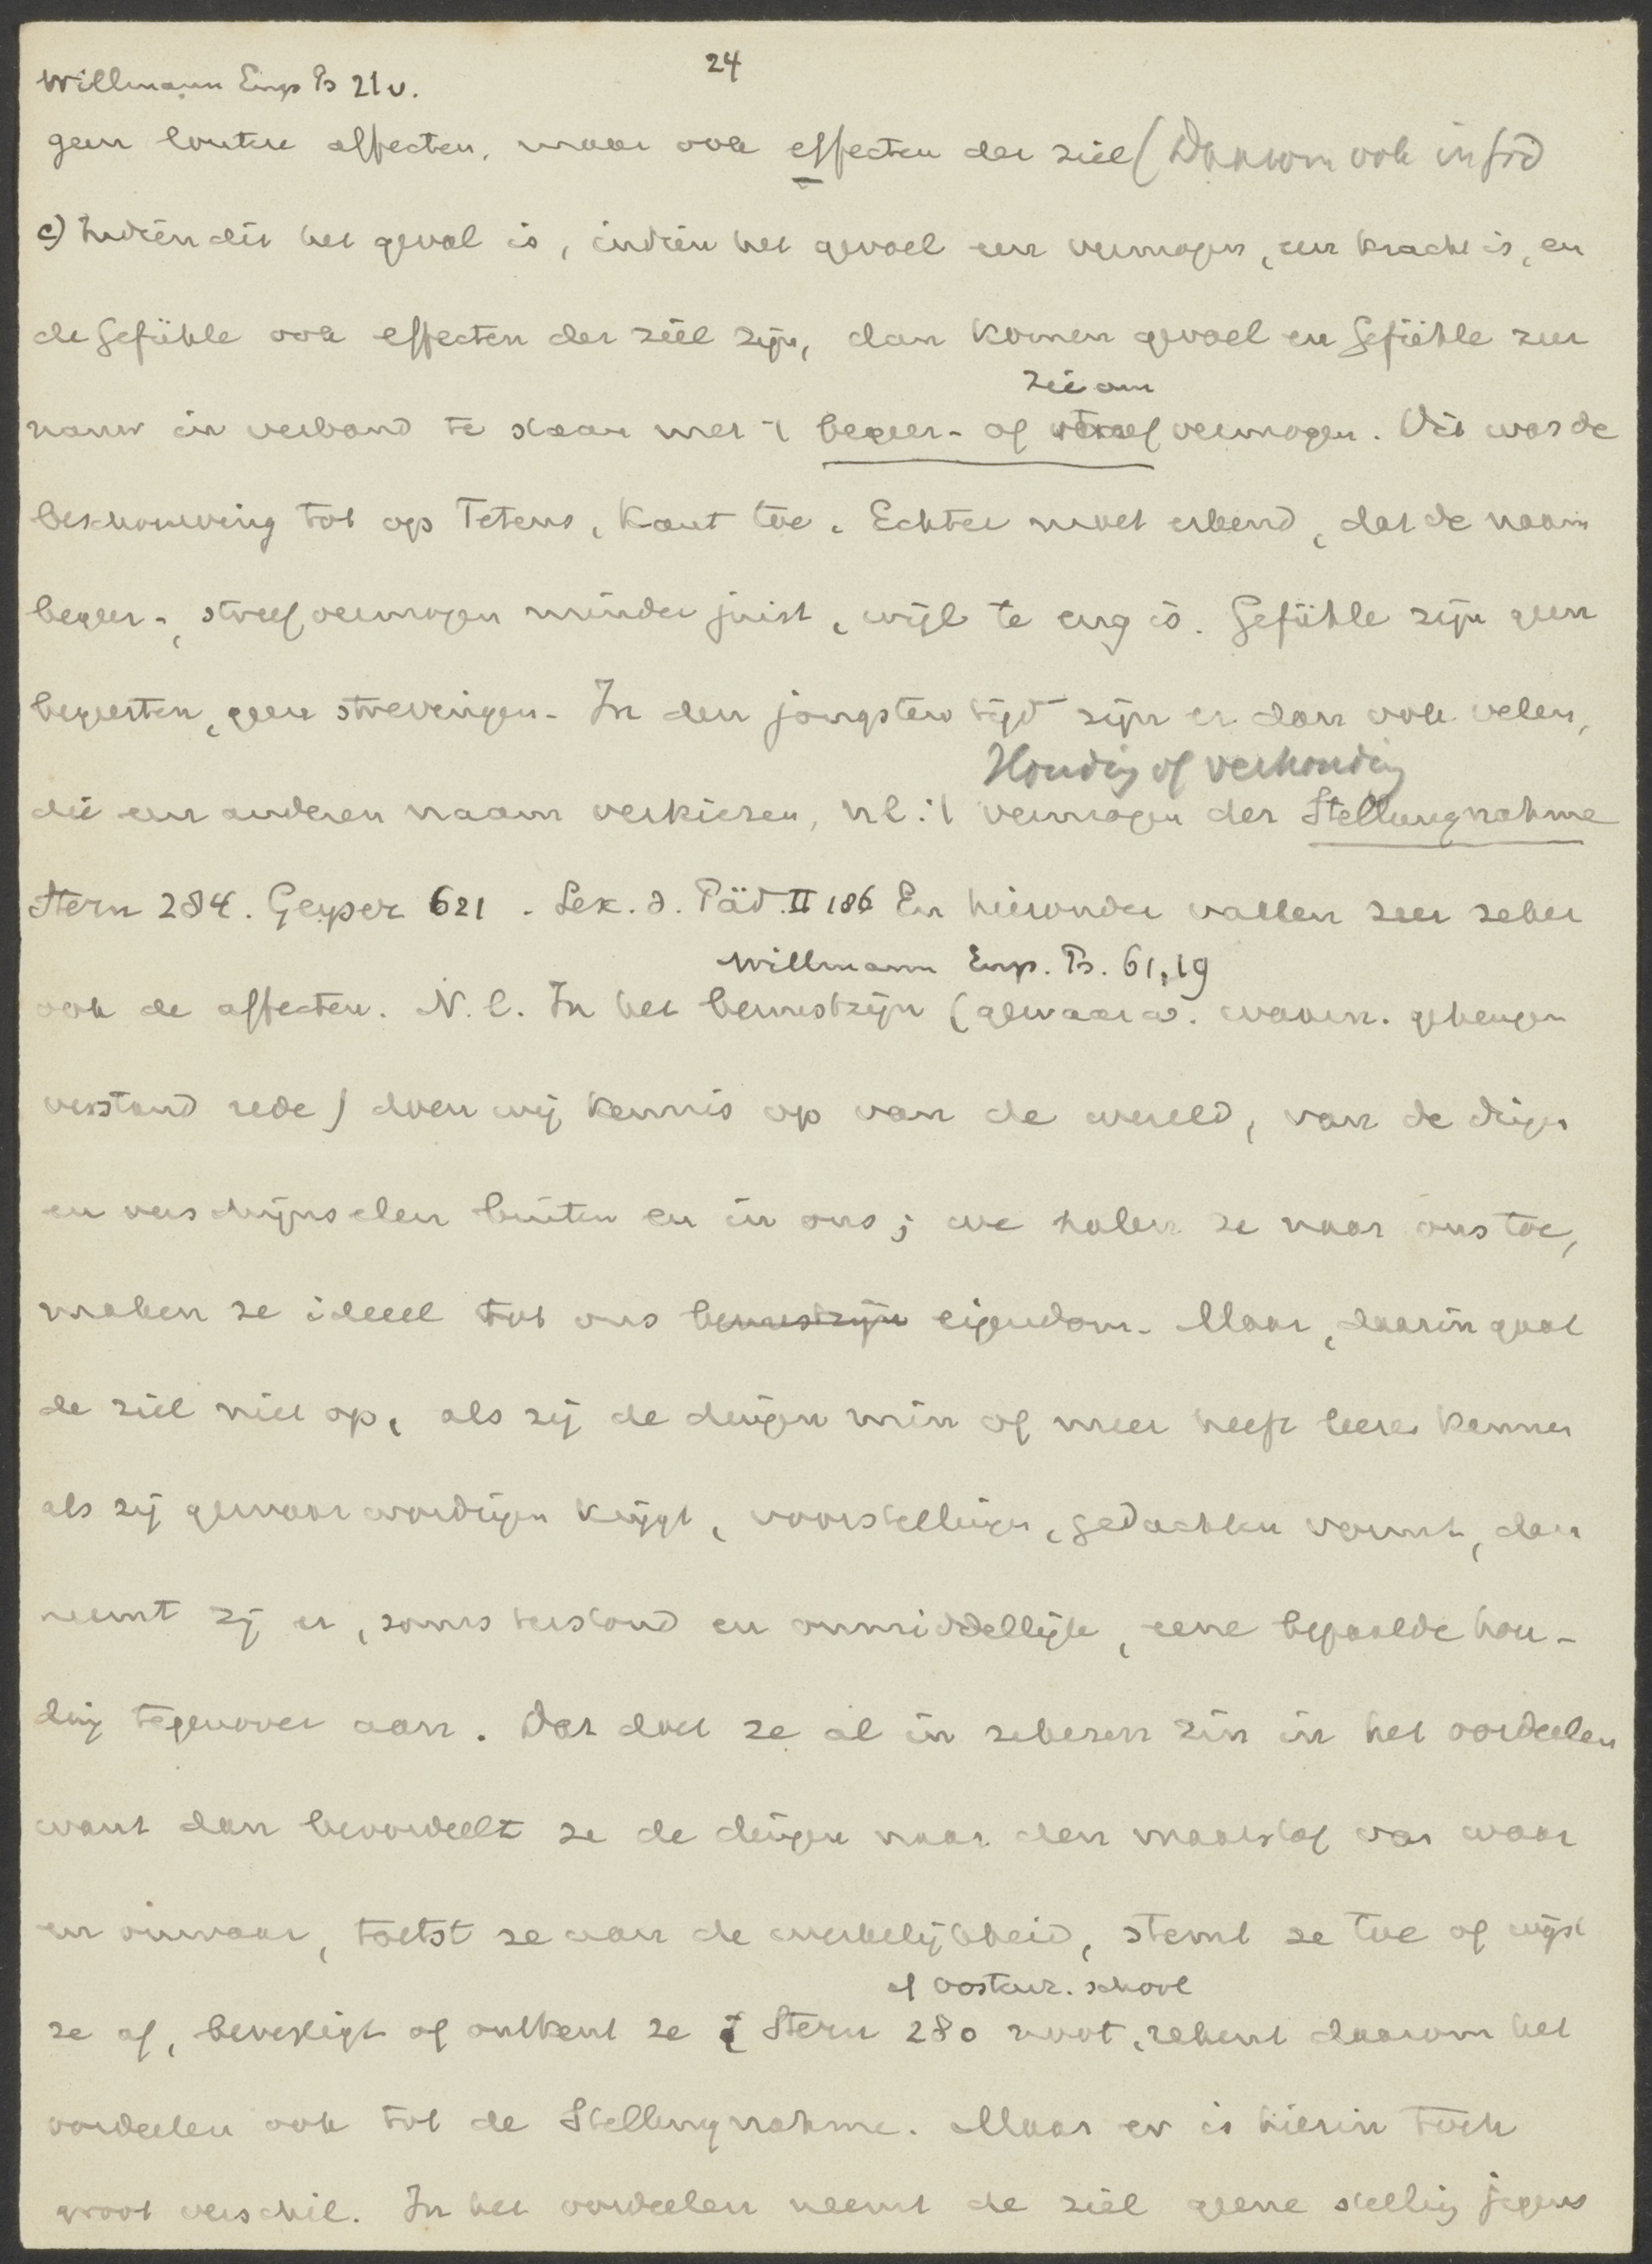 24
Willmann Emp Ps 21v.
geen loutere affecten, maar ook effecten der ziel (Daarom ook in
c) Indien dit het geval is, indien het gevoel een vermogen, een kracht is, en
de Gefühle ook effecten der ziel zijn, dan komen gevoel en Gefühle zeer
nauw in verband te staan met 't begeer- of streefvermogen. Dit was de
beschouwing tot op Tetens, Kant toe. Echter moet erkend, dat de naam
begeer-, streefvermogen minder juist, wijl te eng is. Gefühle zijn geen
begeerten, geen strevingen. In den jongsten tijd zijn er dan ook velen,
Houding of verhouding
die een anderen naam verkiezen, nl. 't vermogen der Stellungnahme
Stern 284. Geyser 621. Lex. d. Päd. II 186 En hieronder vallen zeer zeker
Willmann Emp. Ps. 61, 19
ook de affecten. N.l. In het bewustzijn (gewaarw. waarn. geheugen
verstand rede) doen wij kennis op van de wereld, van de dingen
en verschijnselen buiten en in ons; we halen ze naar ons toe,
maken ze ideeel tot ons bewustzijn eigendom. Maar, daarin gaat
de ziel niet op, als zij de dingen min of meer heeft leeren kennen
als zij gewaarwordingen krijgt, voorstellingen, gedachten vormt, dan
neemt zij er, soms terstond en onmiddellijk, eene bepaalde hou-
ding tegenover aan. Dat doet ze al in zekeren zin in het oordeelen
want dan beoordeelt ze de dingen naar den maatstaf van waar
en onwaar, toetst ze aan de werkelijkheid, stemt ze toe of wijst
cf Oostenr. school
ze af, bevestigt of ontkent ze; Stern 280 noot, rekent daarom het
oordeelen ook tot de Stellungnahme. Maar er is hierin toch
groot verschil. In het oordeelen neemt de ziel geene stelling jegens